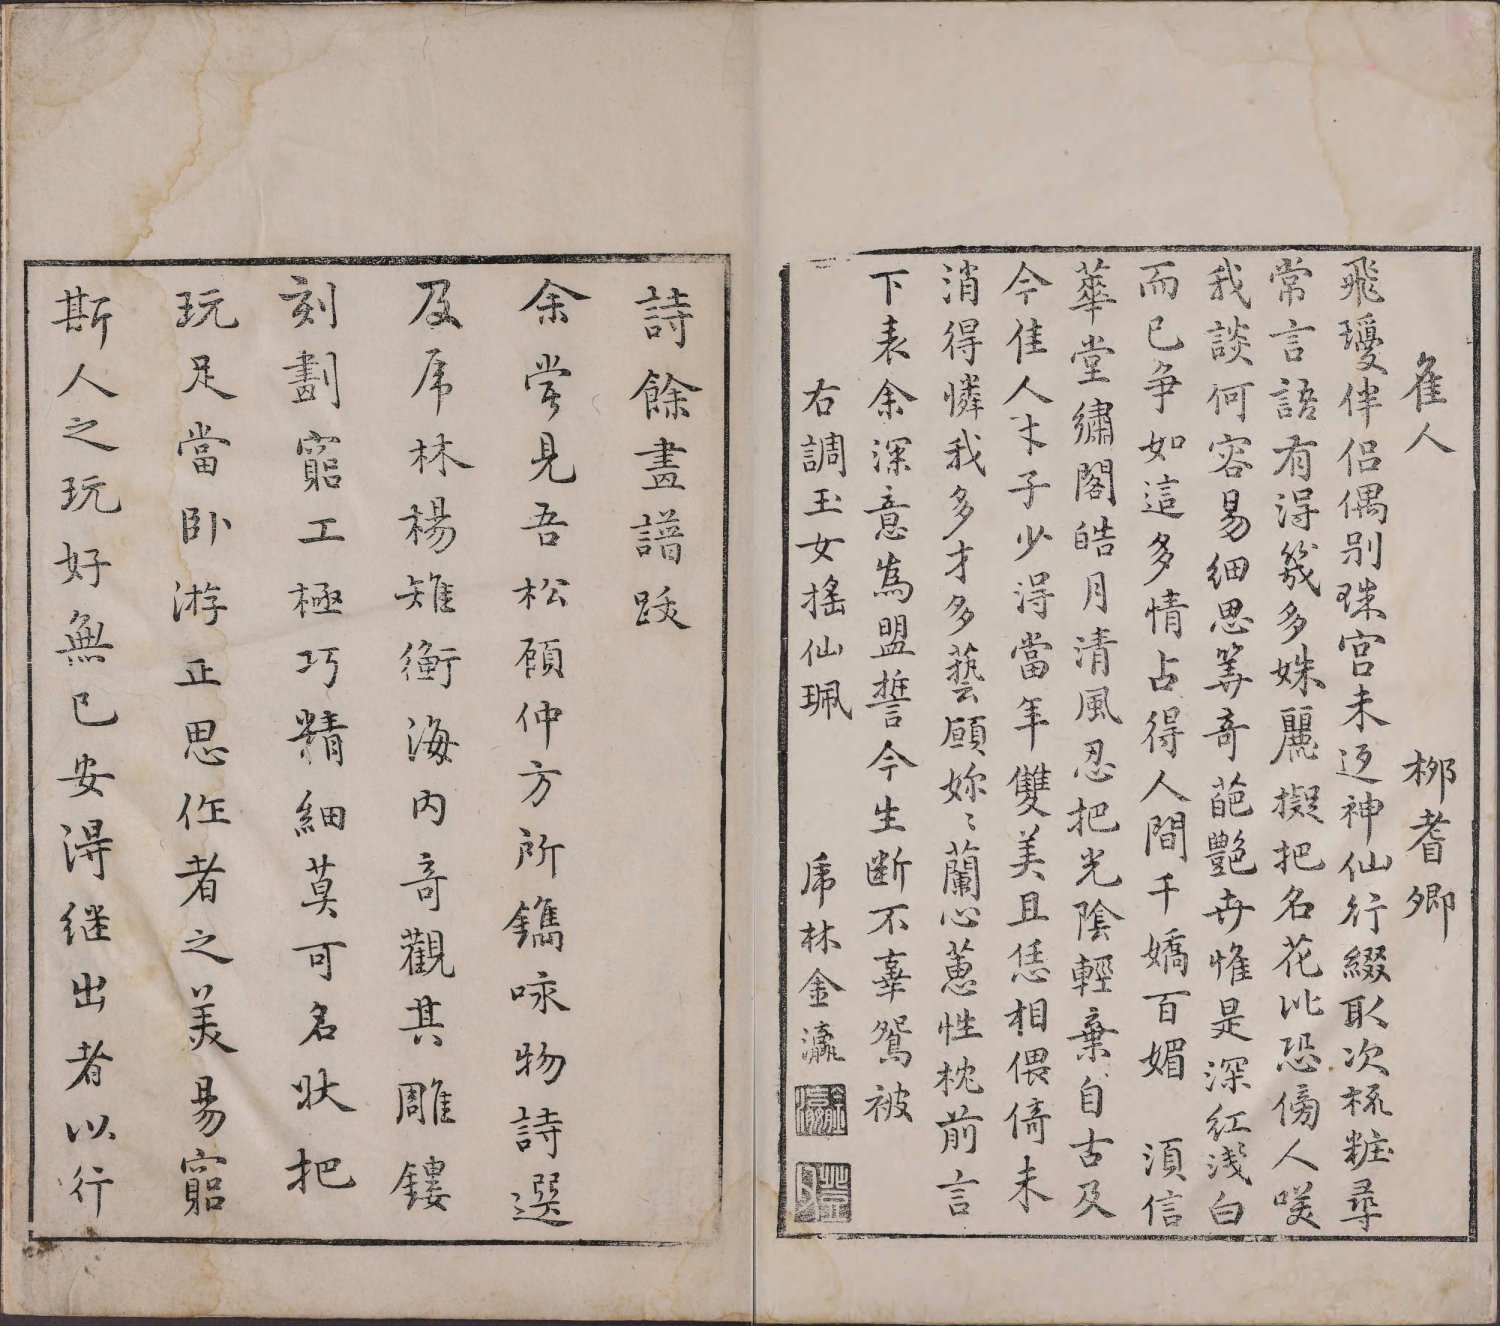 隹人　柳耆卿
飛瓊伴侶偶别珠宮未返神仙行綴取次梳粧尋
常言語有淂㡬多姝麗擬把名花比恐傍人咲
我談何容易細思筭奇葩艷卉惟是深紅浅白
而已争如這多情占得人間千嬌百媚　湏信
華堂繡閣皓月清風忍把光陰輕棄自古及
今隹人才子少淂當年雙美且恁相偎倚未
消得憐我多才多藝願妳〻蘭心蕙性枕前言
下表余深意為盟誓今生断不辜鴛被
右調玉女搖仙珮　虎林金瀛
詩餘畫譜跋
余甞見吾松顧仲方所鐫咏物詩選
及虎林楊雉衡海内竒觀其雕鏤
刻劃窮工極巧精細莫可名狀把
玩足當卧游正思作者之美易窮
斯人之玩好無已安淂继出者以行